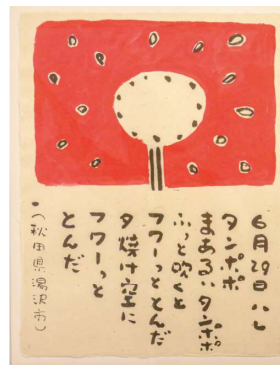 6月29日ハレ
タンポポ
まあるいタンポポ
ふっと吹くと
フワーっととんだ
夕焼け空に
フワーっと
とんだ
(秋田県湯沢市)